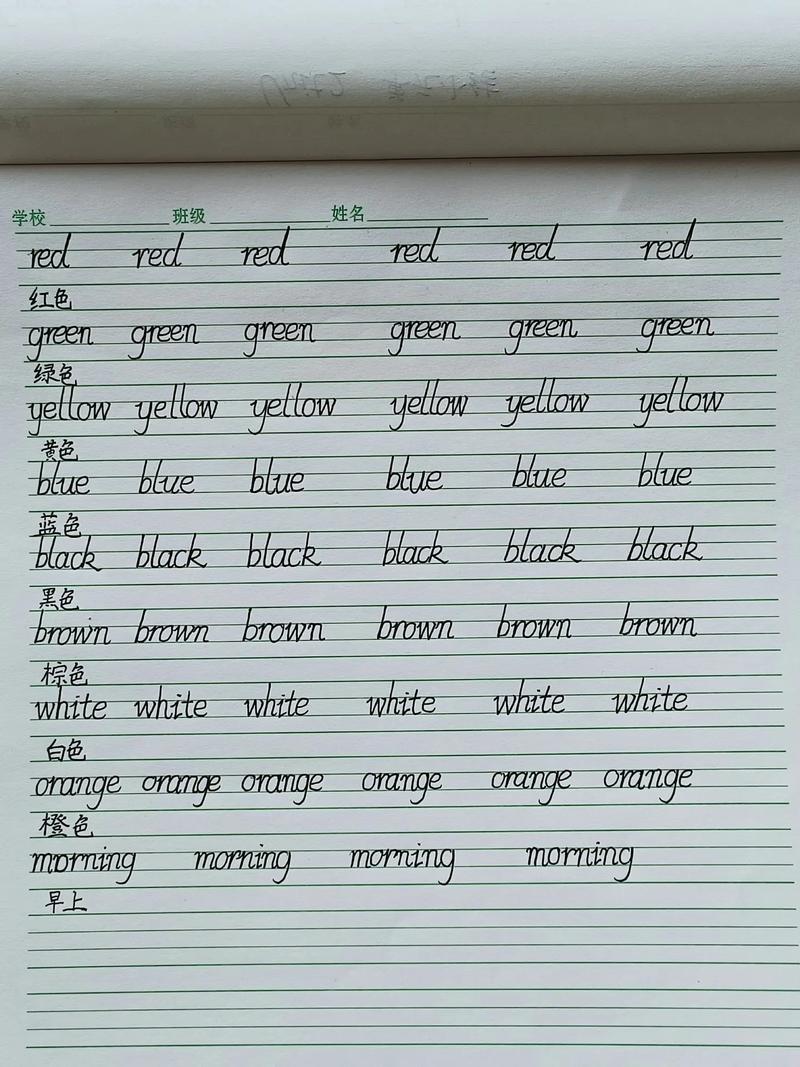 学校 班级 姓名
red red red red red red
红色
green green green green green green
绿色
yellow yellow yellow yellow yellow yellow
黄色
blue blue blue blue blue blue
蓝色
black black black black black black
黑色
brown brown brown brown brown brown
棕色
white white white white white white
白色
orange orange orange orange orange orange
橙色
morning morning morning morning
早上